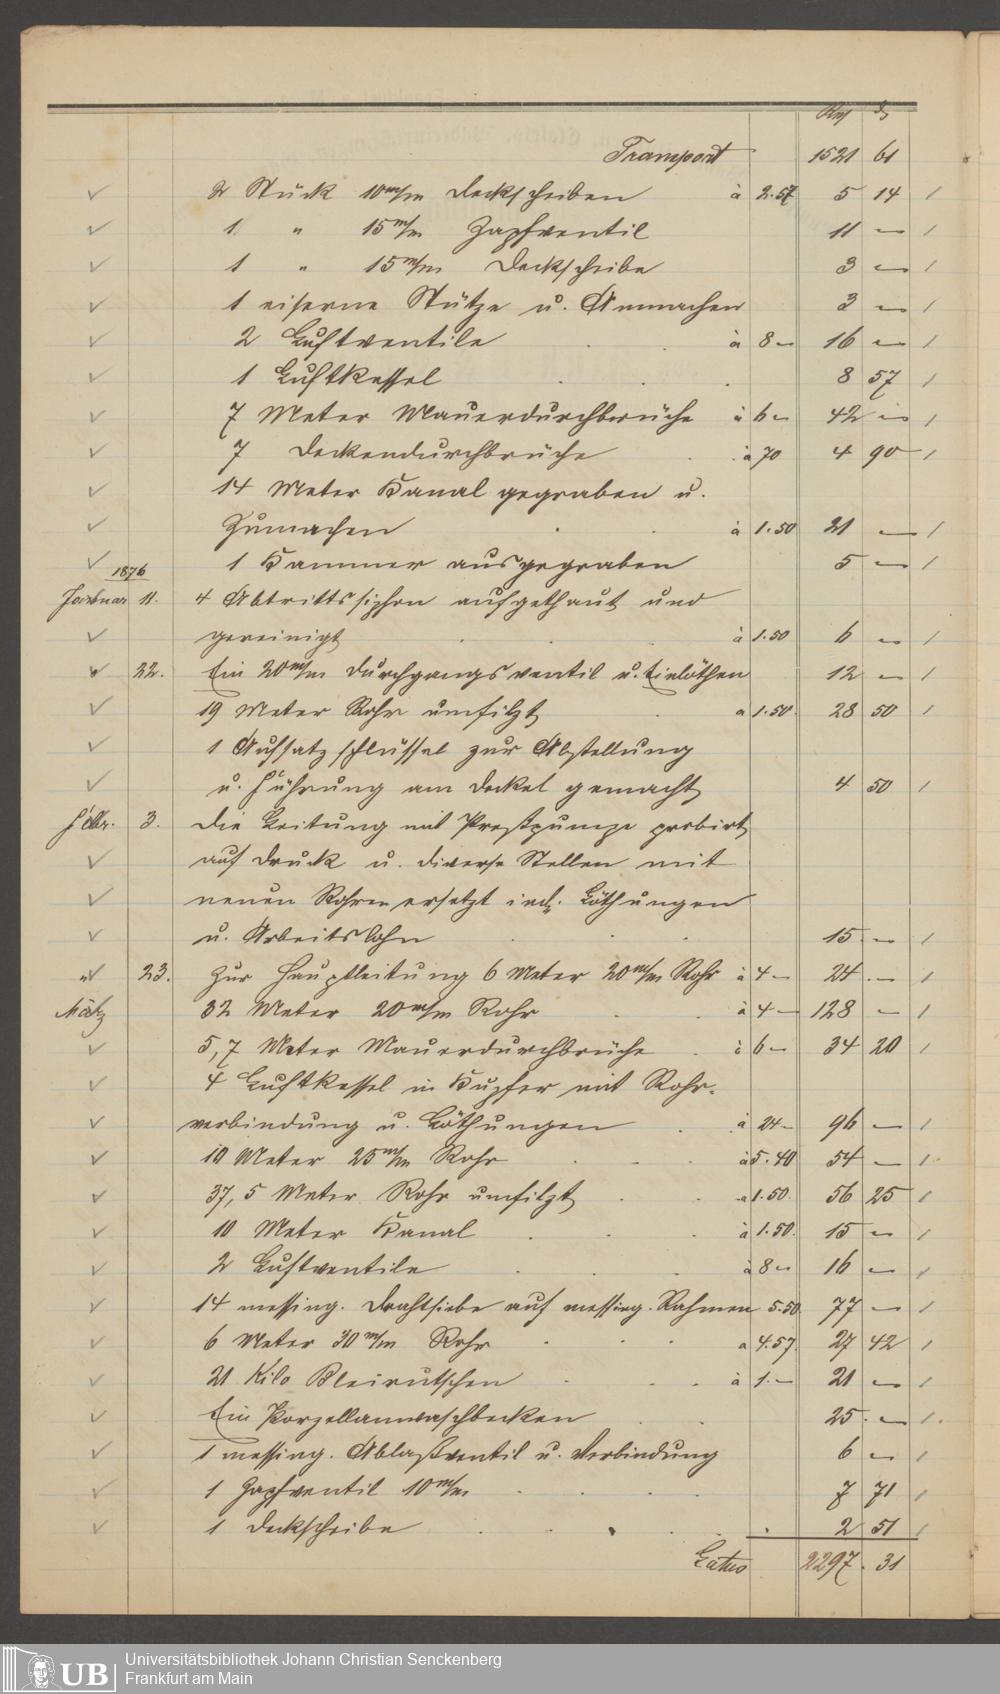 Rm ₰
Transport 1521 61
2 Stück 10 m/m Deckscheiben à 2.57 5 14
1 " 15 m/m Zapfventil 11 —
1 " 15 m/m Deckscheibe 3 —
1 eiserne Stütze u. Anmachen 3 —
2 Luftventile à 8 — 16 —
1 Luftkessel 8 57
7 Meter Mauerdurchbrüche à 6 — 42 —
7 Deckendurchbrüche à 70 4 90
14 Meter Kanal gegraben u.
Zumachen à 1.50 21 —
1 Kammer ausgegraben 5 —
1876
Januar 11. 4 Abtrittssiphon aufgethaut und
gereinigt à 1.50 6 —
" 22. Ein 20 m/m Durchgangsventil u. Einlöthen 12 —
19 Meter Rohr umfilzt à 1.50 28 50
1 Aufsatzschlüssel zur Abstellung
u. Führung am Deckel gemacht 4 50
Febr. 3. Die Leitung mit Preßpumpe probirt
auf Druck u. diverse Stellen mit
neuen Rohren ersetzt incl. Löthungen
u. Arbeitslohn 15 —
" 23. Zur Hauptleitung 6 Meter 20 m/m Rohr à 4 — 24 —
März 32 Meter 20 m/m Rohr à 4 — 128 —
5,7 Meter Mauerdurchbrüche à 6 — 34 20
4 Luftkessel in Kupfer mit Rohr-
verbindung u. Löthungen à 24 — 96 —
10 Meter 25 m/m Rohr à 5.40 54 —
37,5 Meter Rohr umfilzt à 1.50 56 25
10 Meter Kanal à 1.50 15 —
2 Luftventile à 8 — 16 —
14 messing. Drahtsiebe auf messing. Rahmen 5.50 77 —
6 Meter 30 m/m Rohr à 4.57 27 42
21 Kilo Bleirutschen à 1. — 21 —
Ein Porzellanwaschbecken 25 —
1 messing. Ablaßventil u. Verbindung 6 —
1 Zapfventil 10 m/m 7 71
1 Deckscheibe 2 51
Latus 2297. 31
UB Universitätsbibliothek Johann Christian Senckenberg
Frankfurt am Main